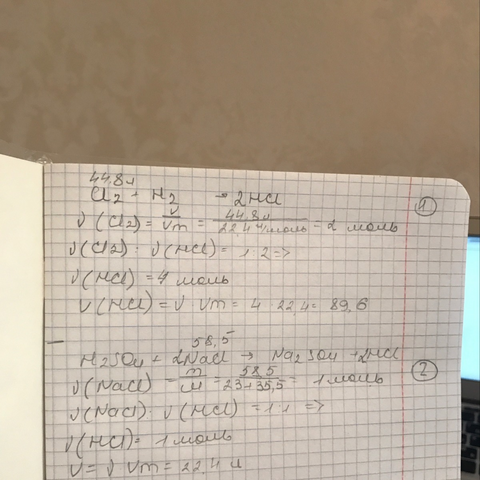 44.8 л
Cl2 + H2 → 2HCl
①
ν(Cl2) = V/Vm = 44.8 л/22.4 л/моль = 2 моль
ν(Cl2) : ν(HCl) = 1:2 =>
ν(HCl) = 4 моль
V(HCl) = ν · Vm = 4 · 22,4 = 89,6
58,5
H2SO4 + 2NaCl → Na2SO4 + 2HCl
②
ν(NaCl) = m/M = 58,5/23+35,5 = 1 моль
ν(NaCl) : ν(HCl) = 1:1 =>
ν(HCl) = 1 моль
V = ν · Vm = 22,4 л